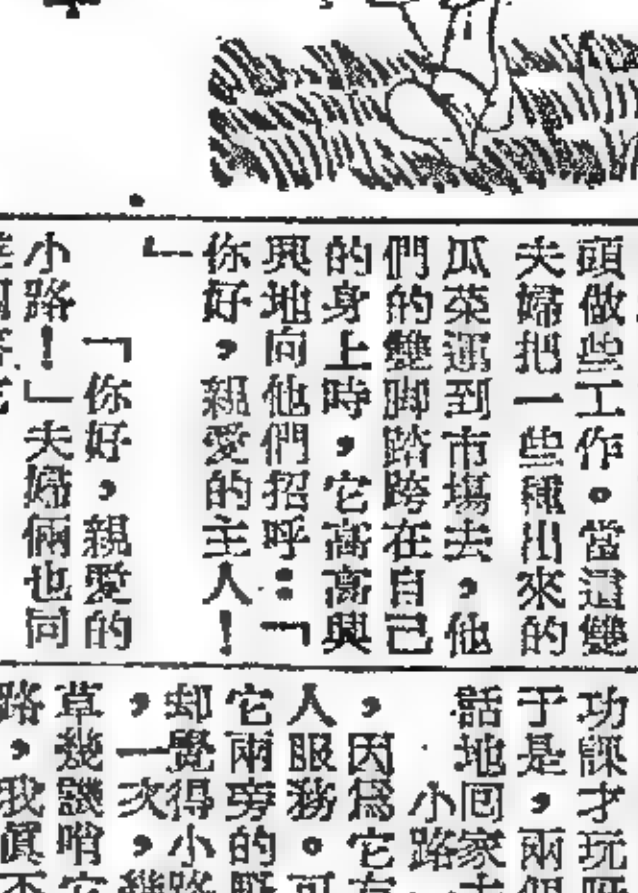 頭做些工作。當這雙
夫婦把一些種出來的
瓜菜運到市場去，他
們的雙脚踏跨在自己
的身上時，它高高興
興地向他們招呼：「
你好，親愛的主人！
」
「你好，親愛的
小路！」夫婦倆也同
功課才玩
于是，兩個
話地回家
小路
，因爲它有
人服務。可
它兩旁的野
却覺得小路
，一次，幾
草幾譏哨它
路，我眞不